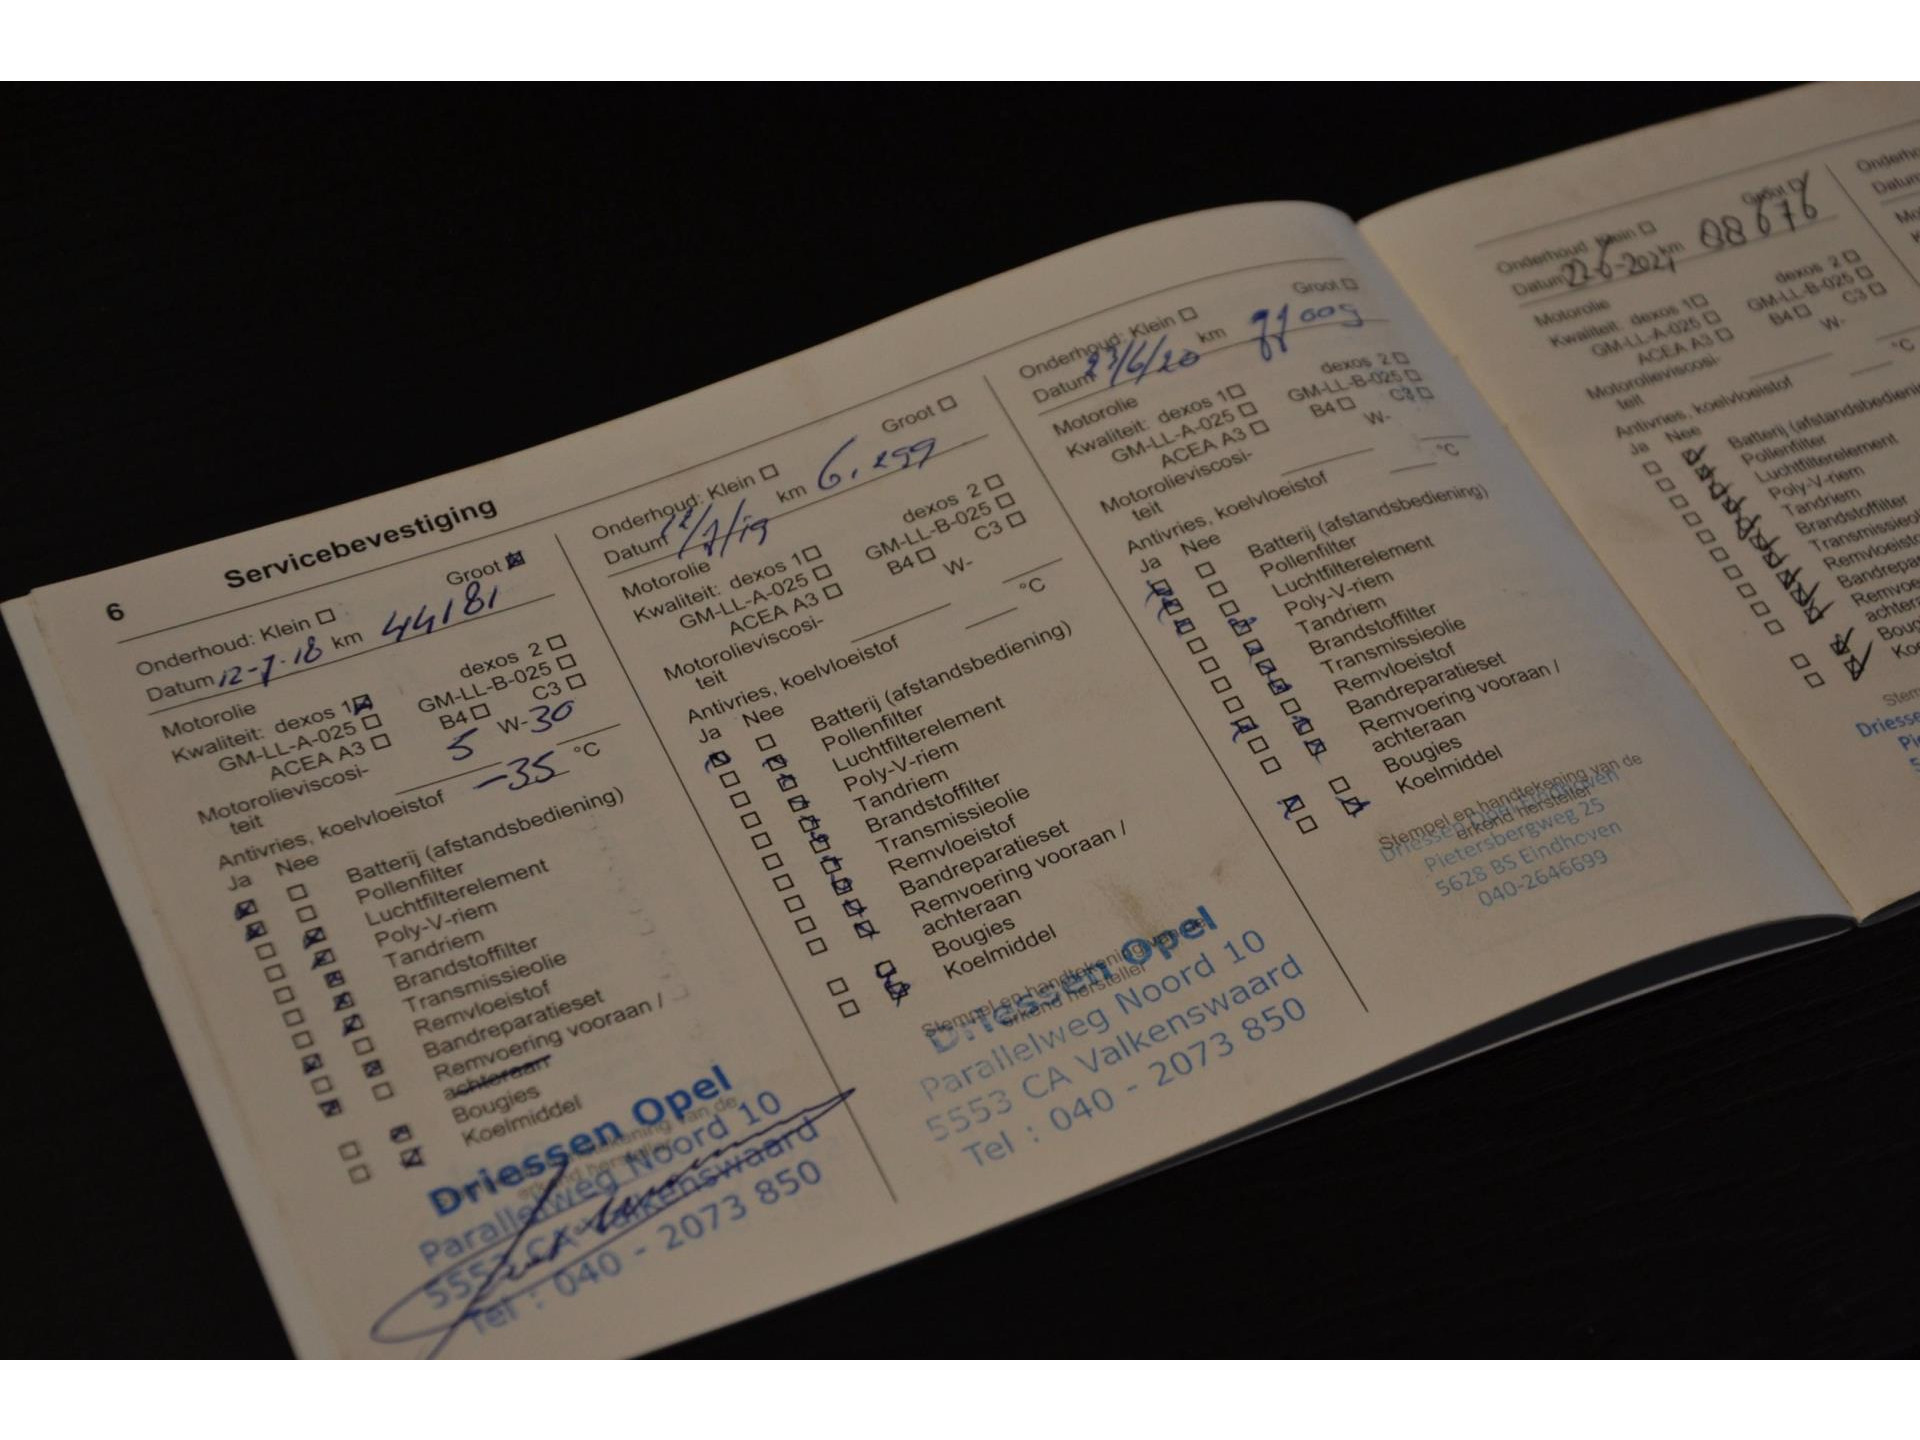 6 Servicebevestiging
Onderhoud: Klein Groot
Datum 12-7-18 km 44181
Motorolie
Kwaliteit: dexos 1 dexos 2
GM-LL-A-025 GM-LL-B-025
ACEA A3 B4 C3
Motorolieviscosi-
teit 5 W-30
Antivries, koelvloeistof -35 °C
Ja Nee
Batterij (afstandsbediening)
Pollenfilter
Luchtfilterelement
Poly-V-riem
Tandriem
Brandstoffilter
Transmissieolie
Remvloeistof
Bandreparatieset
Remvoering vooraan /
achteraan
Bougies
Koelmiddel
Driessen Opel
Parallelweg Noord 10
5553 CA Valkenswaard
Tel : 040 - 2073 850
Onderhoud: Klein Groot
Datum 12/7/19 km
Motorolie
Kwaliteit: dexos 1 dexos 2
GM-LL-A-025 GM-LL-B-025
ACEA A3 B4 C3
Motorolieviscosi-
teit W-
Antivries, koelvloeistof °C
Ja Nee
Batterij (afstandsbediening)
Pollenfilter
Luchtfilterelement
Poly-V-riem
Tandriem
Brandstoffilter
Transmissieolie
Remvloeistof
Bandreparatieset
Remvoering vooraan /
achteraan
Bougies
Koelmiddel
Stempel en handtekening van de
erkend hersteller
Driessen Opel
Parallelweg Noord 10
5553 CA Valkenswaard
Tel : 040 - 2073 850
Onderhoud: Klein Groot
Datum 23/6/20 km
Motorolie
Kwaliteit: dexos 1 dexos 2
GM-LL-A-025 GM-LL-B-025
ACEA A3 B4 C3
Motorolieviscosi-
teit W-
Antivries, koelvloeistof °C
Ja Nee
Batterij (afstandsbediening)
Pollenfilter
Luchtfilterelement
Poly-V-riem
Tandriem
Brandstoffilter
Transmissieolie
Remvloeistof
Bandreparatieset
Remvoering vooraan /
achteraan
Bougies
Koelmiddel
Stempel en handtekening van de
erkend hersteller
Driessen Opel Eindhoven
Pietersbergweg 25
5628 BS Eindhoven
040-2646699
Onderhoud Klein Groot
Datum 22-6-2021 km 08676
Motorolie
Kwaliteit: dexos 1 dexos 2
GM-LL-A-025 GM-LL-B-025
ACEA A3 B4 C3
Motorolieviscosi-
teit W-
Antivries, koelvloeistof °C
Ja Nee
Batterij (afstandsbedieni
Pollenfilter
Luchtfilterelement
Poly-V-riem
Tandriem
Brandstoffilter
Transmissieoli
Remvloeisto
Bandrepara
Remvoe
achtera
Boug
Ko
Stem
Driesse
Pi
5
Onderho
Datum